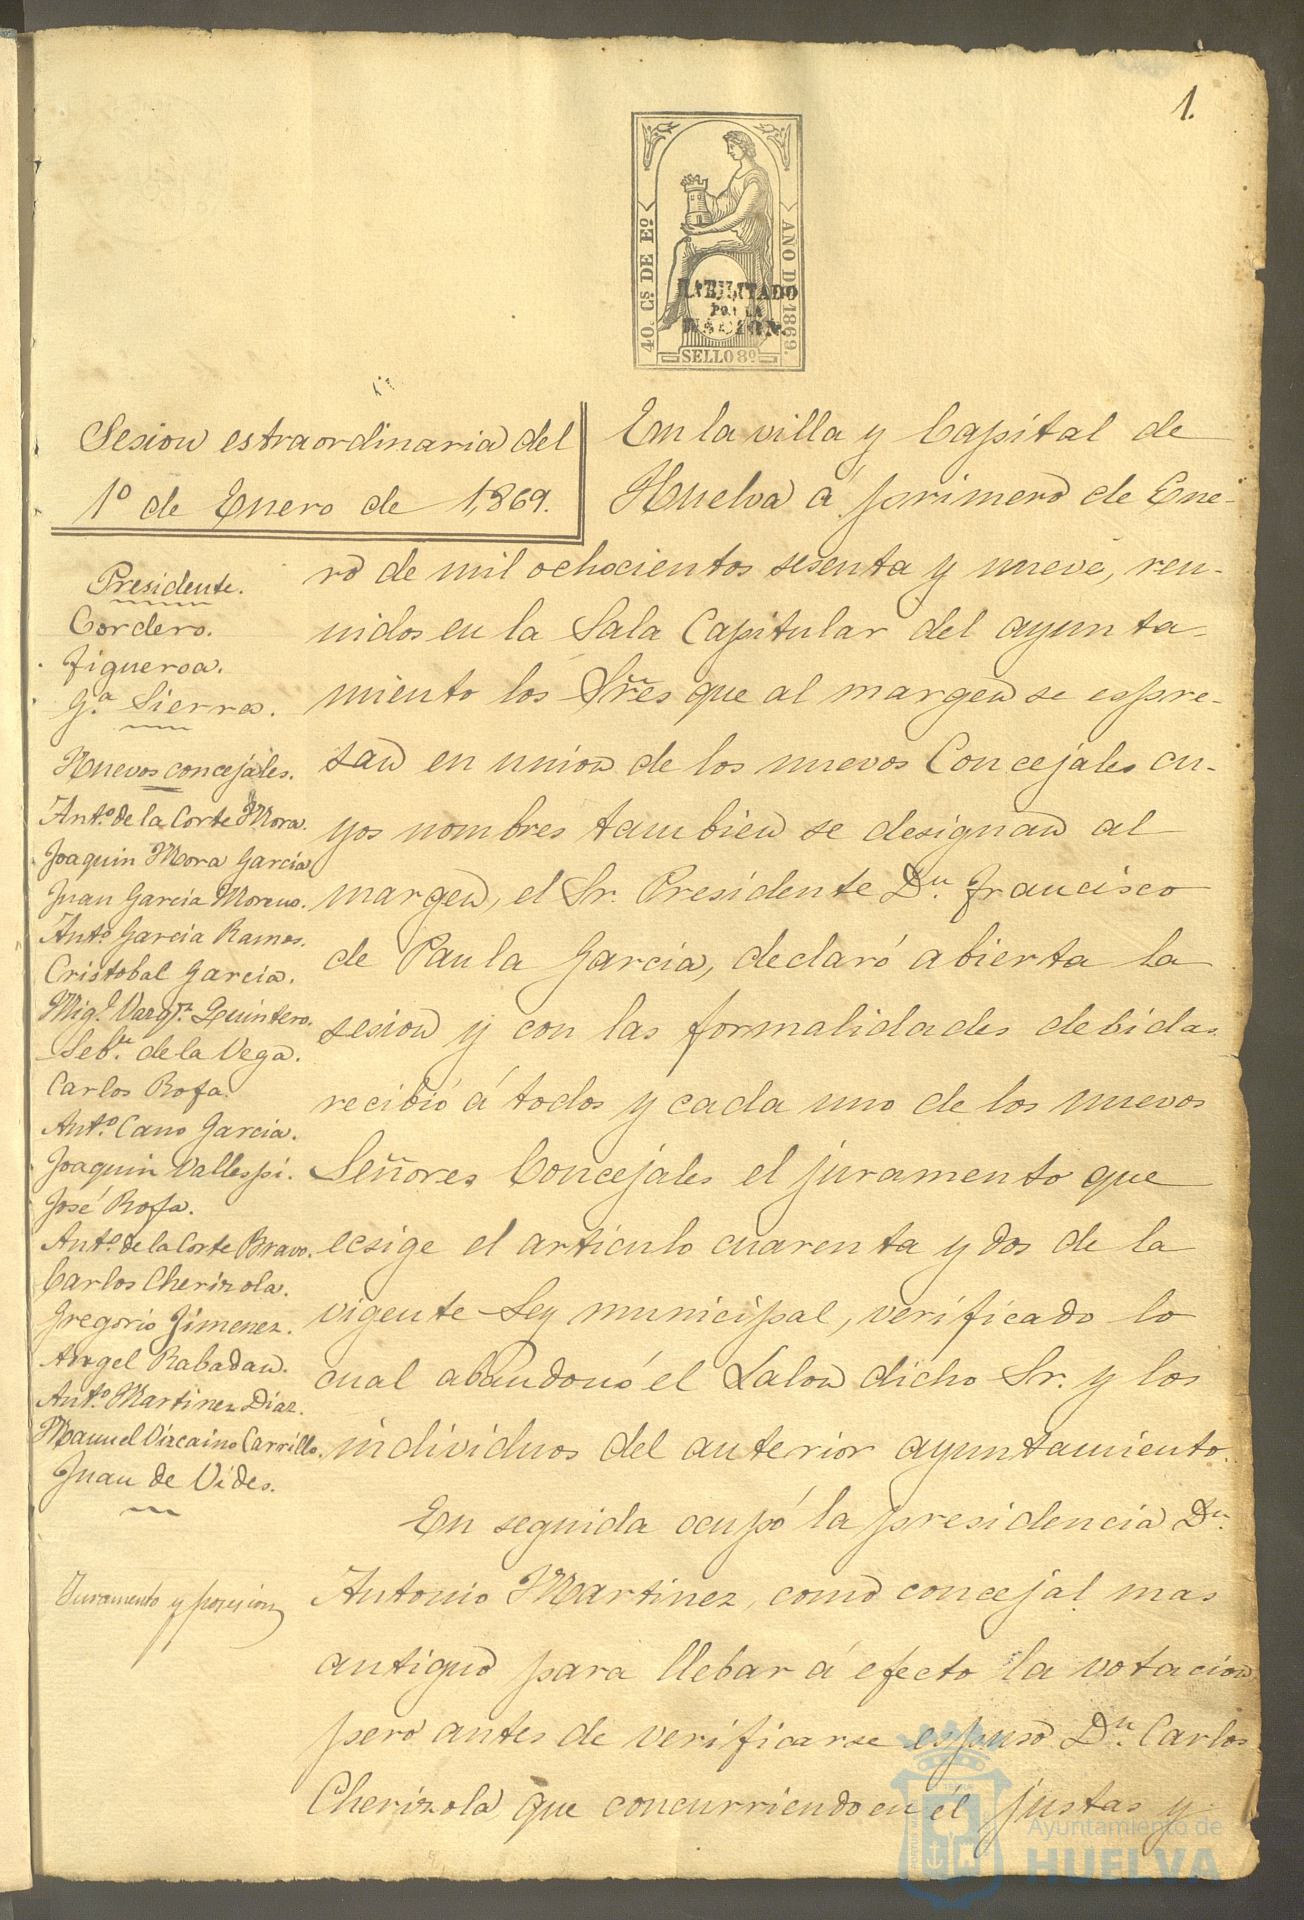 1.
40. Cs. DE Eº.
AÑO DE 1869.
HABILITADO
POR LA
NACION.
SELLO 8º
Sesion estraordinaria del
1º de Enero de 1,869.
Presidente.
Cordero.
Figueroa.
G.ª Sierra.
Nuevos concejales.
Ant.º de la Corte Mora.
Joaquin Mora Garcia
Juan Garcia Moreno.
Ant.º Garcia Ramos.
Cristobal Garcia.
Mig.l Vazq.z Quintero.
Seb.n de la Vega.
Carlos Rofa.
Ant.º Cano Garcia.
Joaquin Vallespi.
José Rofa.
Ant.º de la Corte Bravo.
Carlos Cherizola.
Gregorio Jimenez.
Angel Rabadan.
Ant.º Martinez Diaz.
Manuel Vizcaino Carrillo.
Juan de Vides.
Juramento y posesion
En la villa y Capital de
Huelva á primero de Ene-
ro de mil ochocientos sesenta y nueve, reu-
nidos en la Sala Capitular del ayunta-
miento los Sres que al margen se espre-
san en union de los nuevos Concejales cu-
yos nombres tambien se designan al
margen, el Sr. Presidente Dn. Francisco
de Paula Garcia, declaró abierta la
sesion y con las formalidades debidas
recibió á todos y cada uno de los nuevos
Señores Concejales el juramento que
ecsige el articulo cuarenta y dos de la
vigente Ley municipal, verificado lo
cual abandonó el Salon dicho Sr. y los
individuos del anterior ayuntamiento.
En seguida ocupó la presidencia Dn.
Antonio Martinez, como concejal mas
antiguo para llebar á efecto la votacion
pero antes de verificarse espuso Dn. Carlos
Cherizola que concurriendo en él justas y
Ayuntamiento de
HUELVA